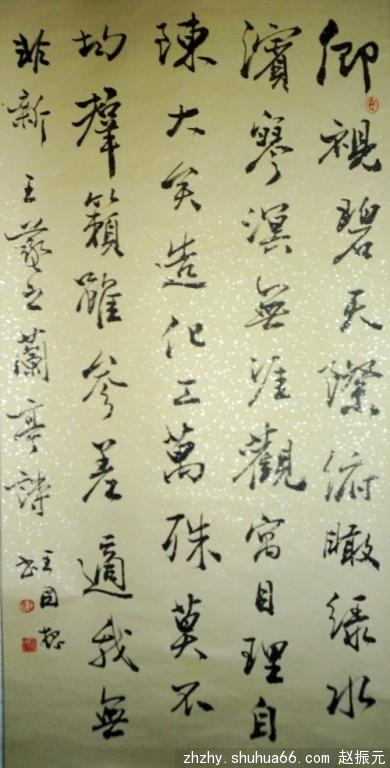 仰視碧天際俯瞰綠水
濱寥溟無涯觀寓目理自
陳大矣造化工萬殊莫不
均羣籟雖參差適我無
非新 王羲之蘭亭詩
王国
书
zhzhy.shuhua66.com 赵振元